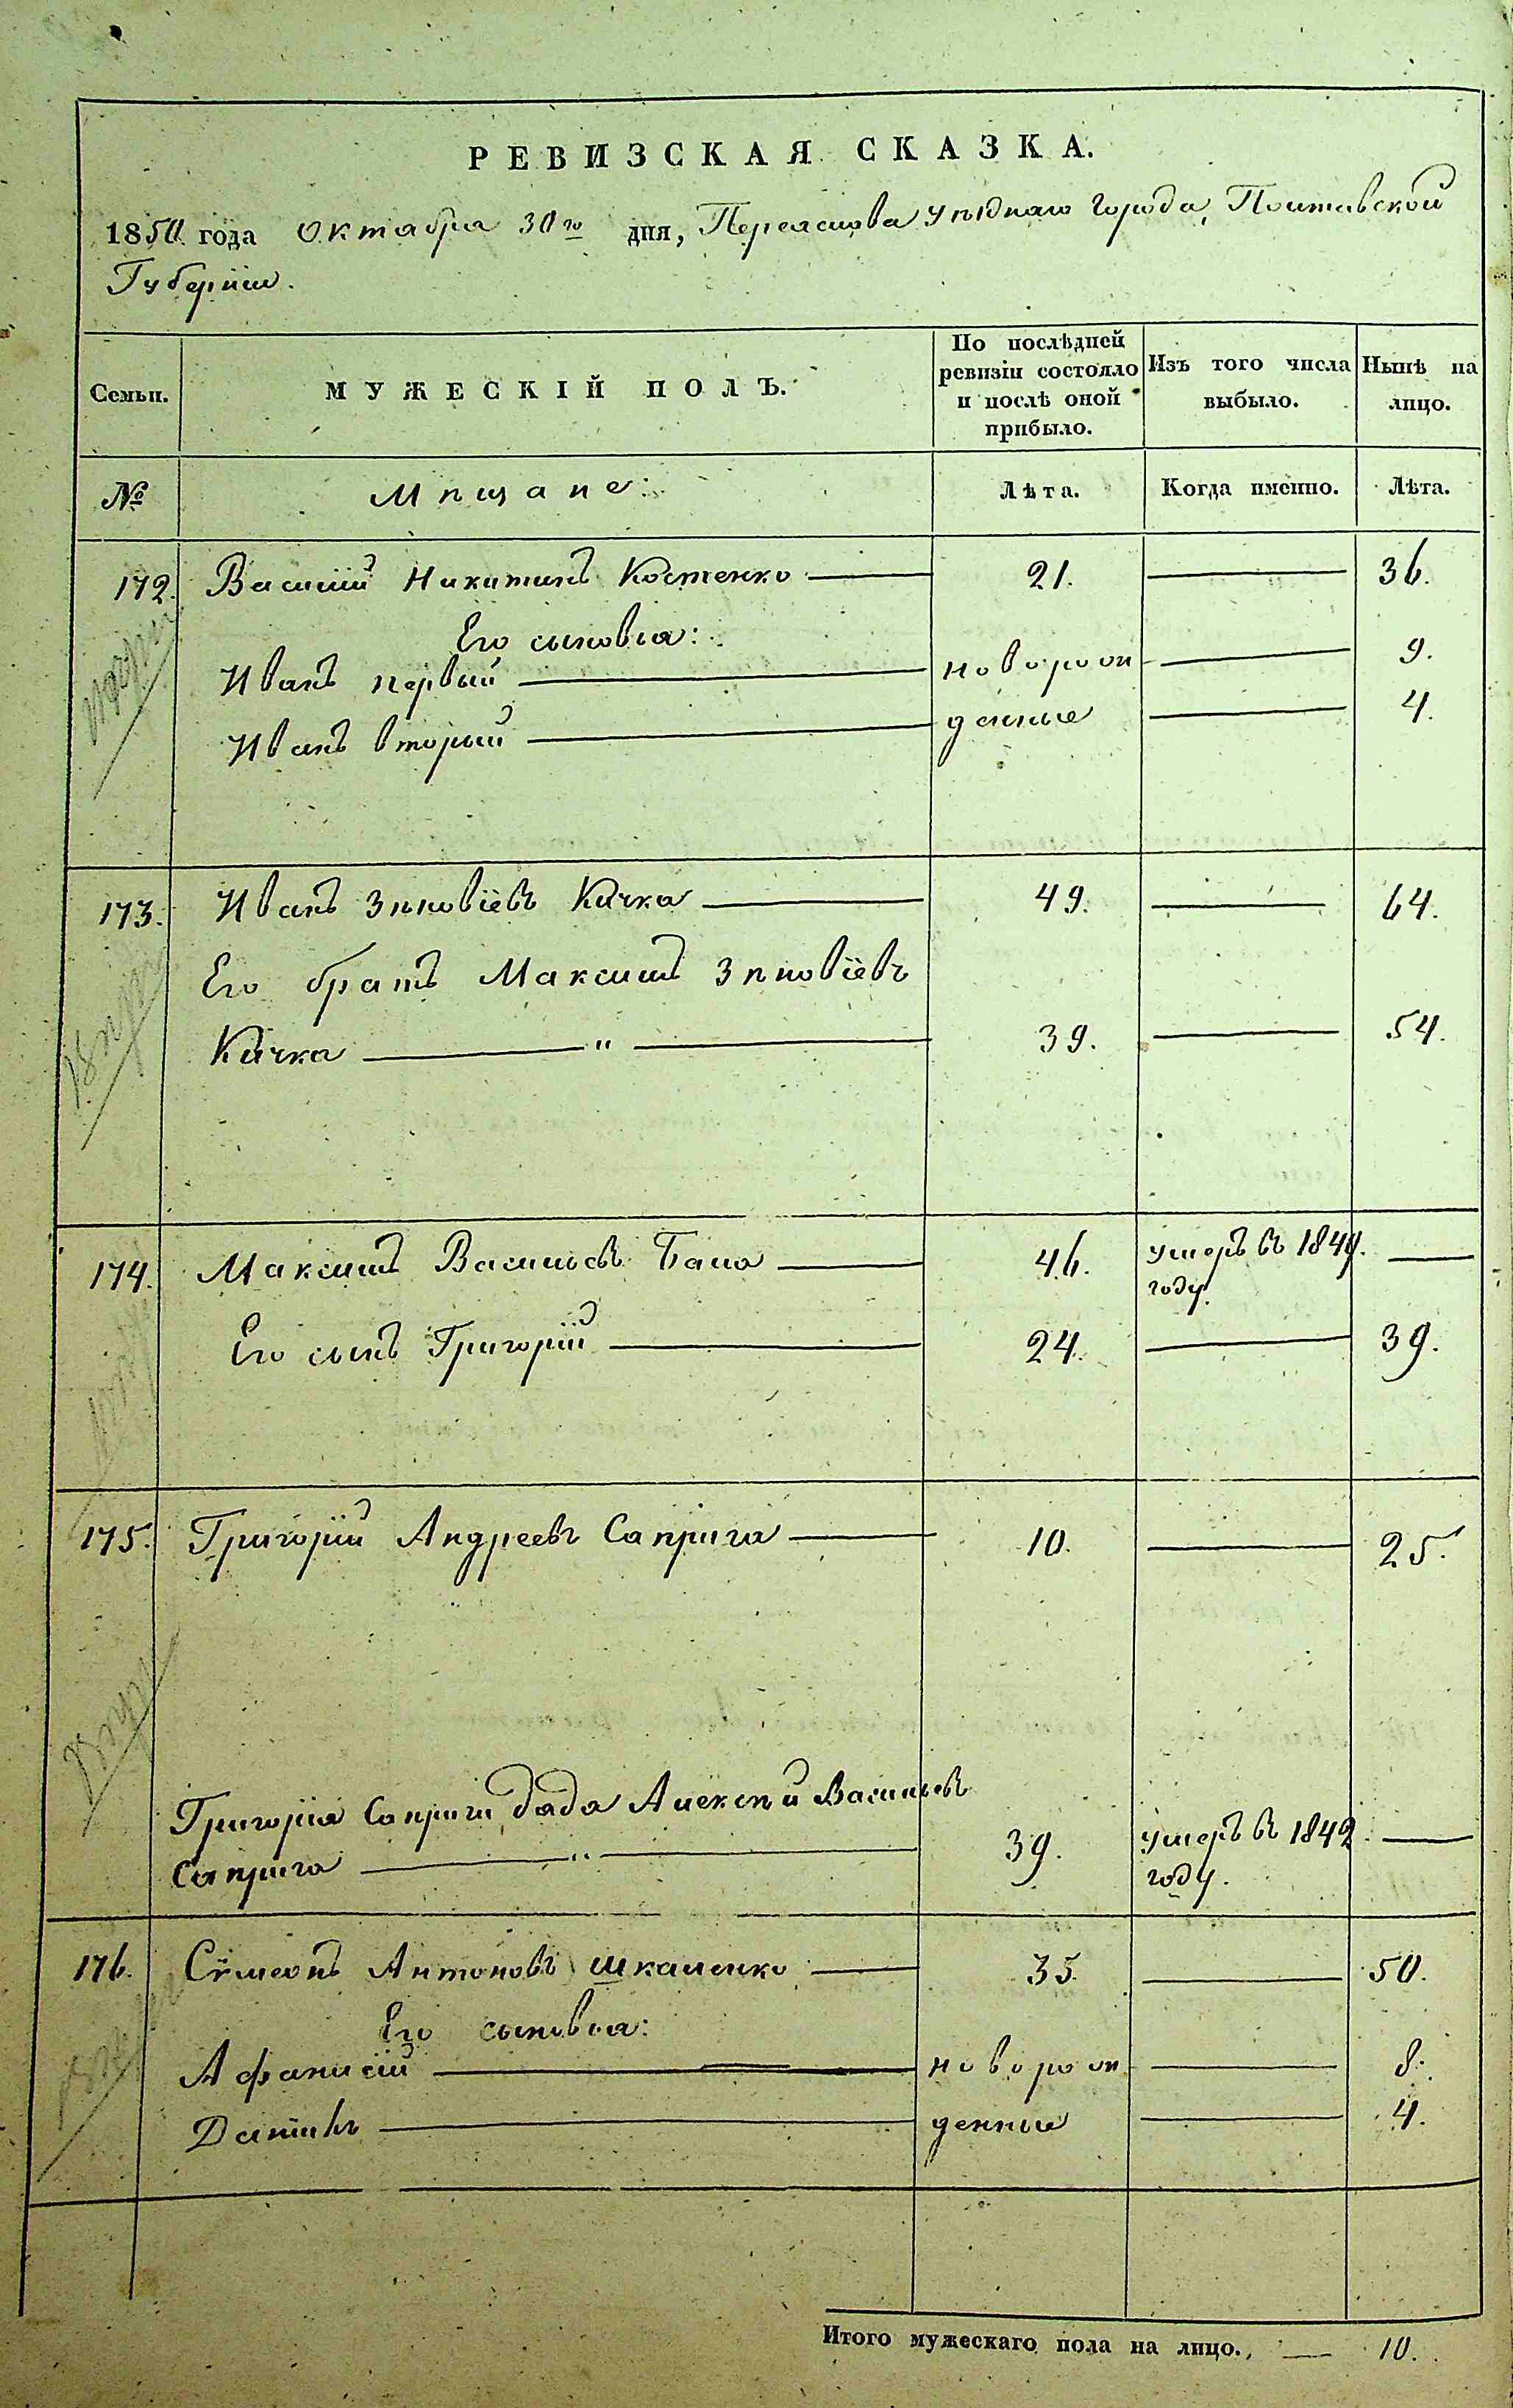 РЕВИЗСКАЯ СКАЗКА.
1850 года Октября 30го дня, Переяслова уѣзднаго города, Полтавской
Губернiи.
Семьи. МУЖЕСКIЙ ПОЛЪ. По послѣдней ревизiи состояло и послѣ оной прибыло. Изъ того числа выбыло. Нынѣ на лицо.
№ Мѣщане: Лѣта. Когда именно. Лѣта.
172. Василiй Никитинъ Костенко 21. 36.
Его сыновья:
Иванъ первый новорож 9.
Иванъ вторый денные 4.
173. Иванъ Зѣновiевъ Качка 49. 64.
Его братъ Максимъ Зѣновiевъ
Качка " 39. 54.
174. Максимъ Васильевъ 46. умеръ въ 1849.
году.
Его сынъ Григорiй 24. 39.
175. Григорiй Андреевъ Саприга 10. 25.
Григорiя Саприги дядя Алексѣй Васильевъ
Саприга " 39. умеръ въ 1842.
году.
176. Сѵмеонъ Антоновъ Шкаленко 35. 50.
Его сыновья:
Афанасiй новорож 8.
денные 4.
Итого мужескаго пола на лицо. 10.